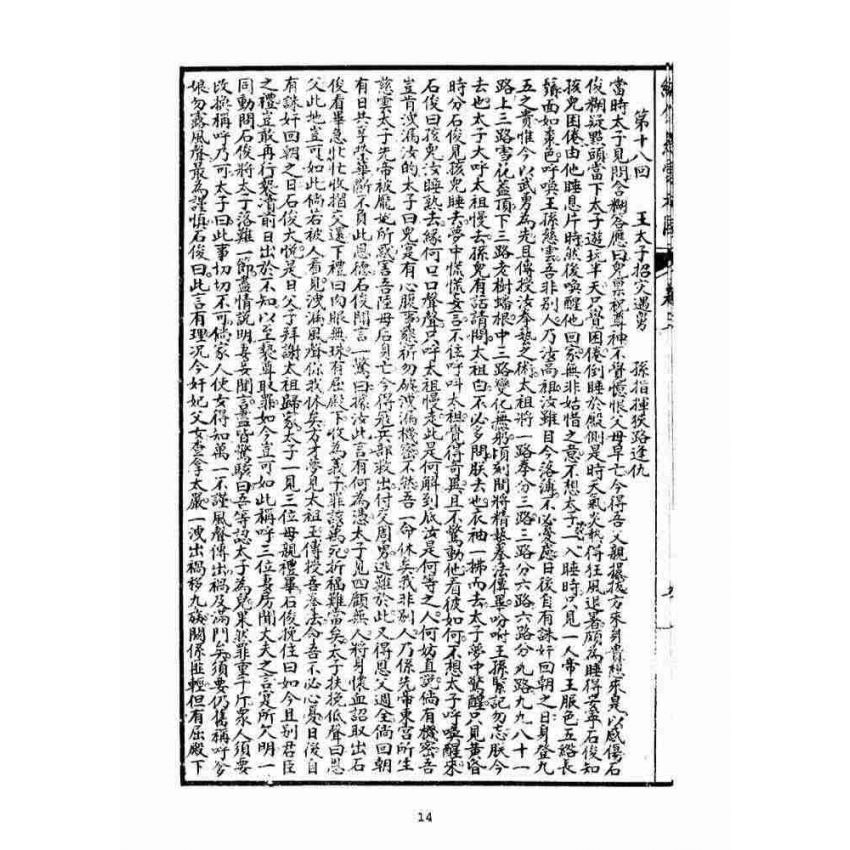 第十八回　王太子招灾遇舅　孫指揮狹路逢仇
當時太子見問含糊答應曰兒稟祝尊神不覺憶恨父母早亡今得吾父親提拔方來身貴想來是以感傷石
俊糊疑點頭當下太子遊玩半天只覺困倦倒睡於殿側是時天氣炎熱得狂風退暑頗為睡得安寧石俊知
孩兒困倦由他睡息片時然後喚醒他回家無非姑惜之意不想太子一入睡時只見一人帝王服色五綹長
鬚面如棗色呼喚王孫慈雲吾非別人乃汝高祖汝雖目今落薄不必憂慮日後自有誅奸回朝之日身登九
五之貴惟今以武勇為先且傳授汝拳藝之術太祖將一路拳分三路三路分六路六路分九路九九八十一
路上三路雪花蓋頂下三路老樹蟠根中三路變化無窮頃刻間將精藝拳法傳畢吩咐王孫緊記勿忘朕今
去也太子大呼太祖慢去孫兒有話請問太祖曰不必多問朕去也衣袖一拂而去太子夢中驚醒只見黃昏
時分石俊見孩兒睡去夢中慌慌妄言不住呼叫太祖覺得奇異且不驚動他看彼如何不想太子呼喚醒來
石俊曰孩兒汝睡熟去緣何口口聲聲只呼太祖慢走此是何解到底汝是何等之人何妨直說倘有機密吾
豈肯洩漏汝的太子曰兒寔有心腹事稟祈勿破洩漏機密不然吾一命休矣我非別人乃係先帝東宮所生
慈雲太子先帝被龐妃所惑害吾陸母后身亡今得冦兵部救出付交周勇逃難於此又得恩父週全倘回朝
有日共享榮華斷不負此恩德石俊聞言一驚曰據汝此言有何為憑太子見四顧無人將身懷血詔取出石
俊看畢急忙忙收指交還下禮曰肉眼無珠有屈殿下收為義子罪該萬死折福難當矣太子扶挽低聲曰恩
父此地豈可如此倘若被人看見洩漏風聲你我休矣方才夢見太祖王傳授吾拳法命吾不必心憂日後自
有誅奸回朝之日石俊大悅是日父子拜謝太祖歸家太子一見三位母親禮畢石俊挽住曰如今且別君臣
之禮豈敢再行褻瀆前日出於不知以至褻尊取罪如今豈可如此稱呼三位妻房聞丈夫之言是所欠明一
同動問石俊將太子落難一節盡情說明妻妾聞言盡皆驚駭曰吾等認太子為兒果然罪重千斤眾人須要
改換稱呼乃可太子曰此事切切不可倘家人使女得知萬一不謹風聲傳出禍及滿門矣須要仍舊稱呼爹
娘勿露風聲最為謹慎石俊曰此言有理况今奸妃父女查拿太嚴一洩出禍移九族關係匪輕但有屈殿下
14